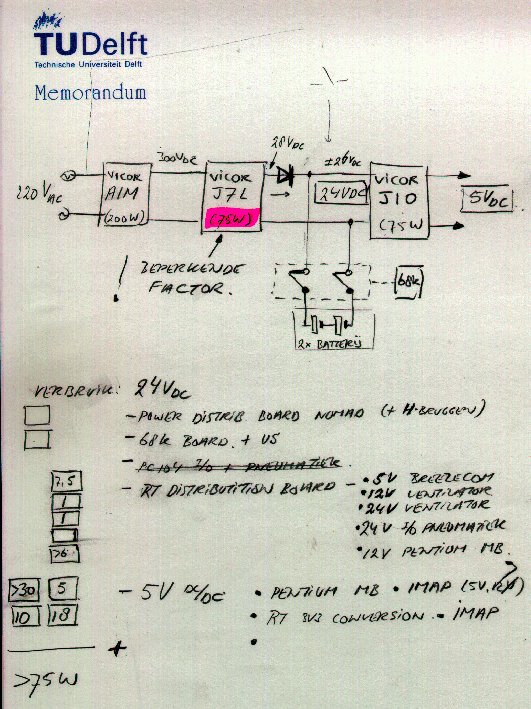 TU Delft
Technische Universiteit Delft
Memorandum
28VDC
300VDC
±26VDC
220 VAC
VICOR
AIM
(200W)
VICOR
J7L
(75W)
24VDC
VICOR
J10
(75W
5VDC
! BEPERKENDE
FACTOR.
68k
2x BATTERIJ
VERBRUIK: 24VDC
- POWER DISTRIB BOARD NOMAD (+ H-BRUGGEN)
- 68k BOARD. + US
- PC104 I/O + PNEUMATIEK.
7,5 - RT DISTRIBUTITION BOARD - • 5V BREEZECOM
1 • 12V VENTILATOR
1 • 24V VENTILATOR
• 24V I/O PNEUMATIEK
>6 • 12V PENTIUM MB.
>30 5 - 5V DC/DC • PENTIUM MB • IMAP (5V, 12V)
10 18 • RT 3V3 CONVERSION - IMAP
+ •
>75W